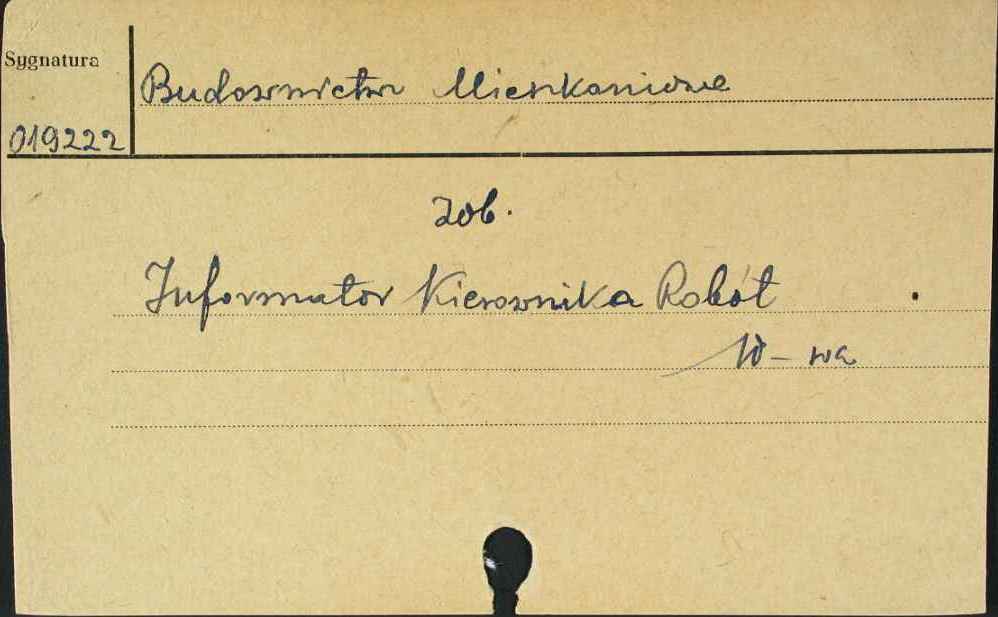 Sygnatura
Budownictwo Mieszkaniowe
019222
zob.
Informator Kierownika Robót
W-wa